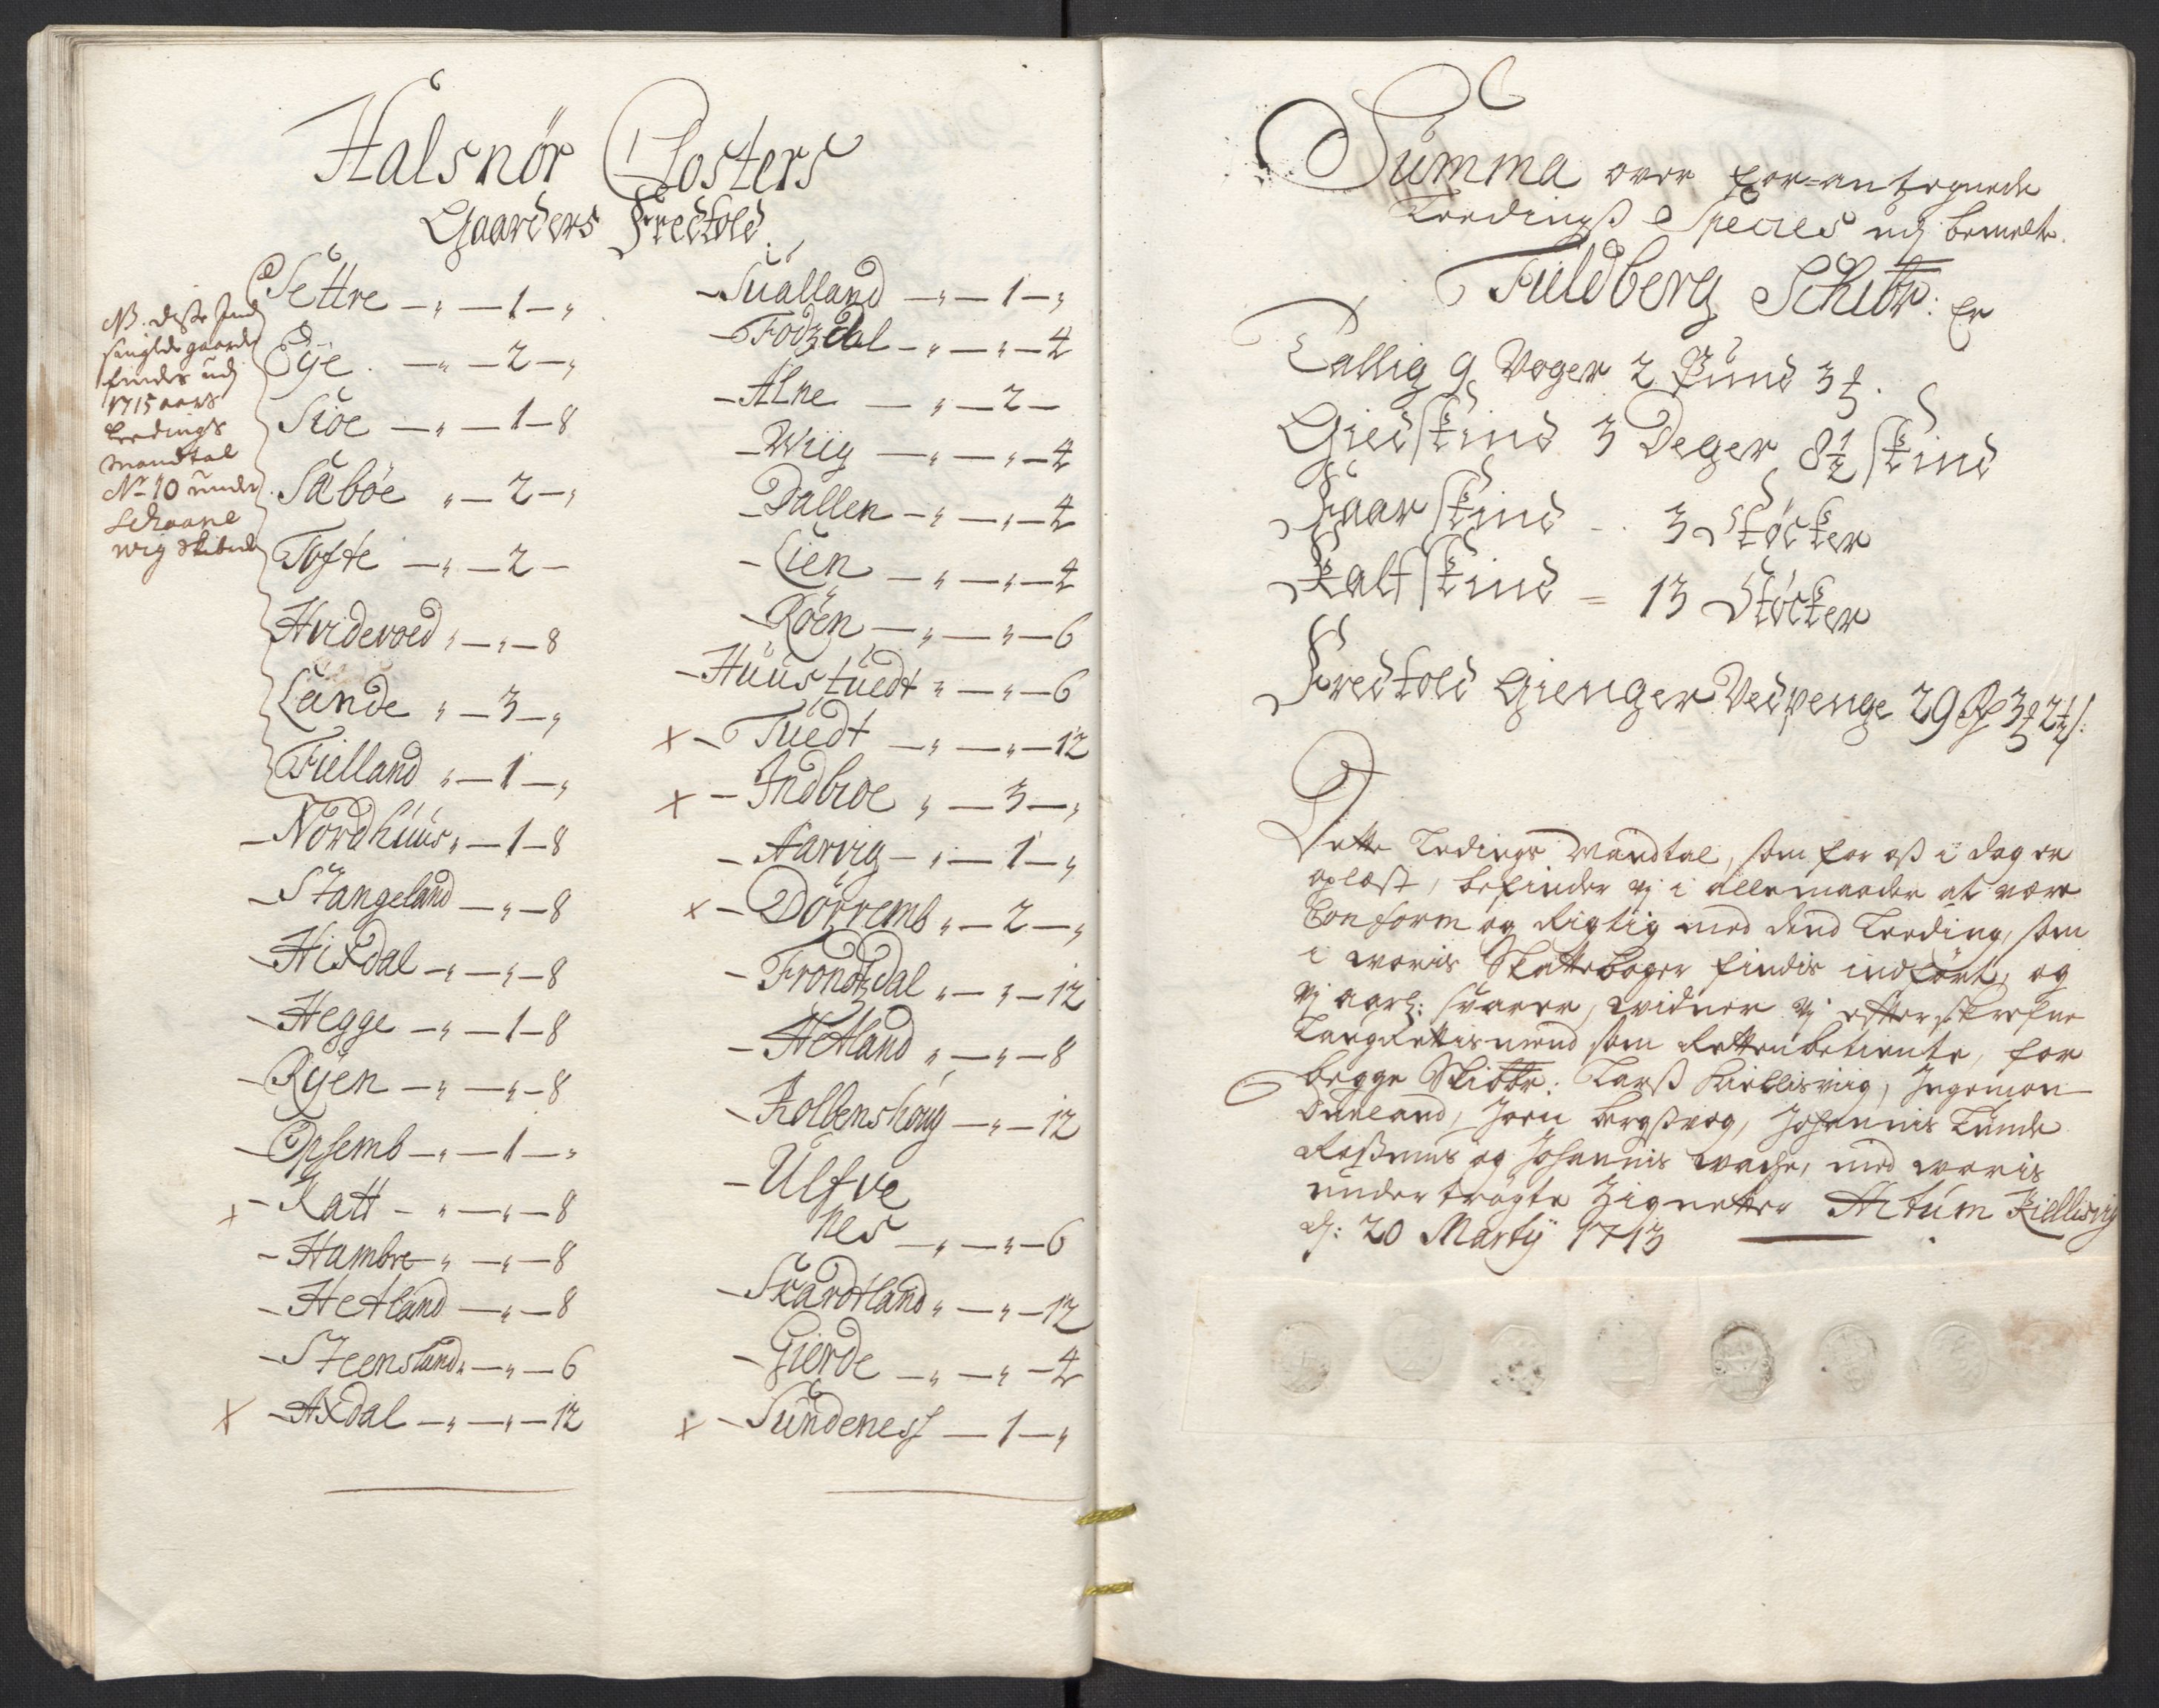 Halsnör Closters
Gaarders Frectold
NB. diße Ind
sluglde gaarde
findes udj
1715 aars
Leedings
Mandtal
No 10 under
Schaane
wig skibrede
Settre — " — 1 — "
Øÿe. — " — 2 — "
Siöe — " — 1 — 8
Säböe " — 2 — "
Tofte — " — 2 —
Hvidevoed " — " — 8
Lande " — 3 — "
Fielland " — 1 — "
– Nordhuus " — 1 — 8
– Stangeland — " — 8
– Hixdal — " — " — 8
– Hegge — " — 1 — 8
– Rÿen — " — " — 8
– Opsemb — " — 1 — "
x – Katt – " — " — 8
– Hambre — " — " — 8
– Hetland — " — 8
– Steensland " — " — 6
x – Axdal — " — " — 12
– Sualland — " — 1 — "
– Fodzdal — " — " — 4
– Alne — " — 2 —
– Wiig — " — " — 4
– Dallen — " — " — 4
– Lien — " — " — 4
– Röen — " — " — 6
– Huustuedt " — " — 6
x – Tuedt — " — " — 12
x – Indbioe " — 3 — "
– Aarvig — " — 1 — "
x – Dörremb " — 2 — "
– Frondtzdal " — " — 12
– Hetland " — " — 8
– Kolbenshoug — " — 12
– Ulfve
nes — " — " — 6
– Skardtland " — " — 12
– Gierde — " — " — 4
x – Sundeness — 1 — "
Summa over for=antegnede
Leedingß Species udj bemelte
Fieldberg Schibr: Er
Tallig 9 Voger 2 Pund 3
Giedskind 3 Deger 8½ skind
Faarskind – . 3 Støcker
Kalfskind = 13 Støcker
Frectold Gienger Vedpenge 29 3 2½
Dette Ledings Mandtal, som for oß i dag er
oplæst, befinder vj i allemaader at være
Conform og Rigtig med dend Leeding, som
i woris Skattebøger findis indført, og
vj aarl: svarer, widner vj efterskrefne
Laugrettismend som Rettenbetiente, for
begge Skibbr: Larß Kiellisviig, Ingemon
Dueland, Joen , Johannis Tunde
Raßmus og Johannis , med woris
undertrøgte Zignetter Actum Kiellesvig
d: 20 Martÿ 1713